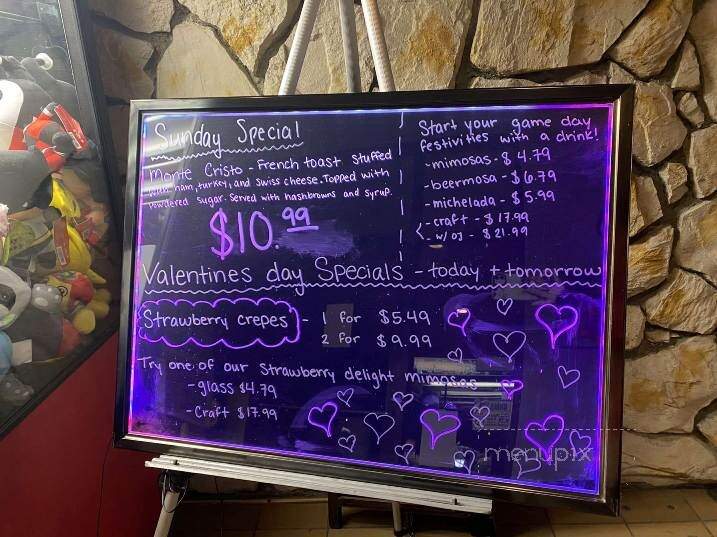 Sunday Special
Monte Cristo - French toast stuffed
with ham, turkey, and swiss cheese. Topped with
powdered sugar. Served with hashbrowns and syrup.
$10.99
Start your game day
festivities with a drink!
- mimosas - $ 4.79
- beermosa - $ 6.79
- michelada - $ 5.99
- craft - $ 17.99
- w/ oj - $ 21.99
Valentines day Specials - today + tomorrow
Strawberry crepes - 1 for $5.49
2 for $9.99
Try one of our strawberry delight mimosas
- glass $4.79
- Craft $17.99
menupix